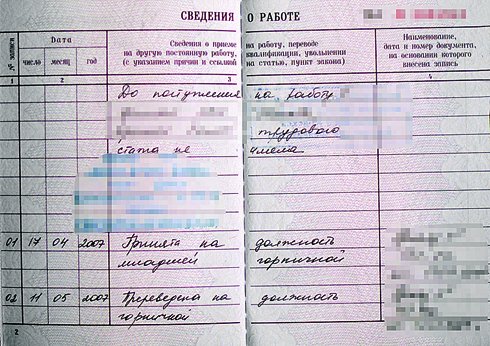 СВЕДЕНИЯ О РАБОТЕ
№ записи
Дата
число месяц год
Сведения о приеме на работу, переводе
на другую постоянную работу, квалификации, увольнении
(с указанием причин и ссылкой на статью, пункт закона)
Наименование,
дата и номер документа,
на основании которого
внесена запись
1 2 3 4
До поступления на работу
трудового
стажа не имела
01 17 04 2007 Принята на должность
младшей горничной
02 11 05 2007 Переведена на должность
горничной
2